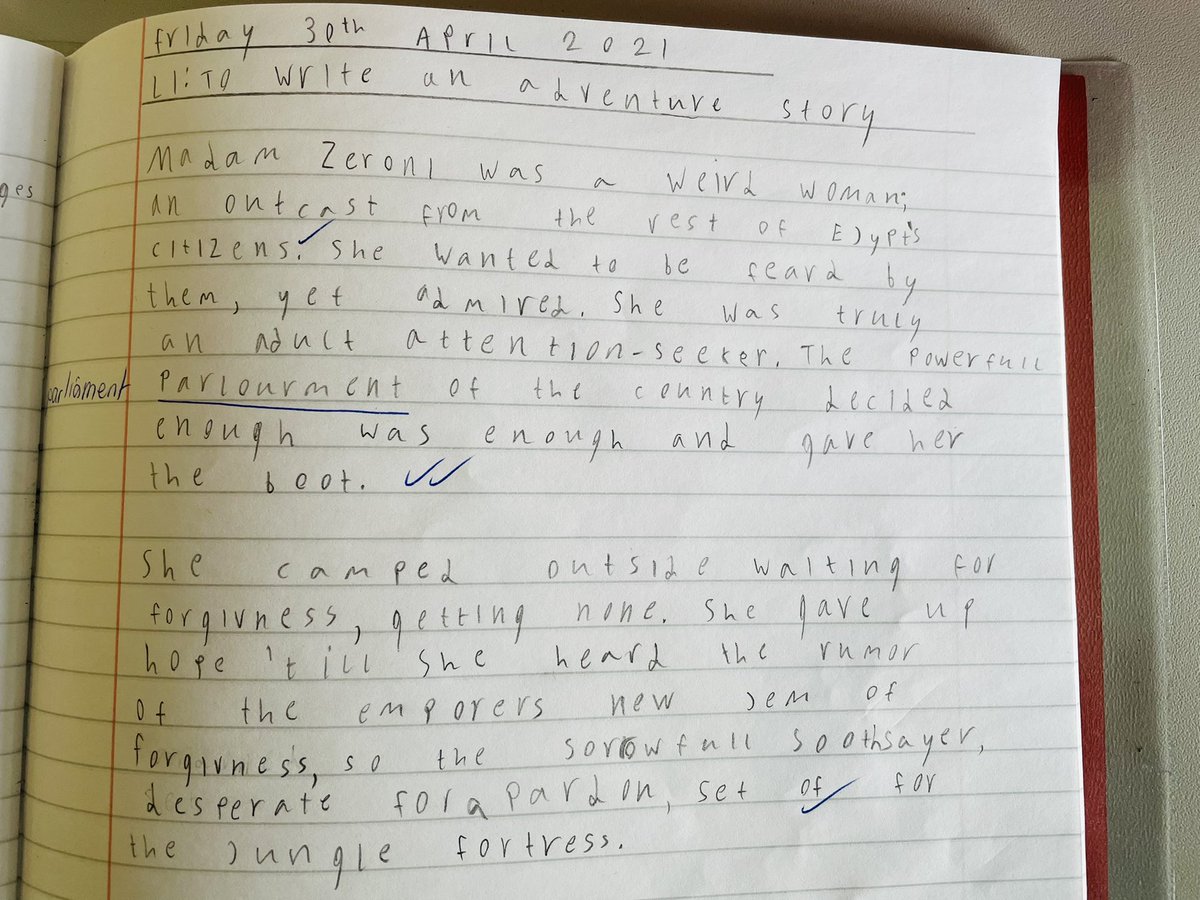 friday 30th April 2021
LI: To write an adventure story
Madam Zeroni was a weird woman;
an outcast from the rest of Ejypt's
citizens. She wanted to be feard by
them, yet admired. She was truly
an adult attention-seeker. The powerfull
parliament
Parlourment of the country decided
enough was enough and gave her
the boot.
She camped outside waiting for
forgivness, getting none. She gave up
hope 'till she heard the rumor
of the emporers new jem of
forgivness, so the sorrowfull soothsayer,
desperate for a pardon, set of for
the jungle fortress.
ges